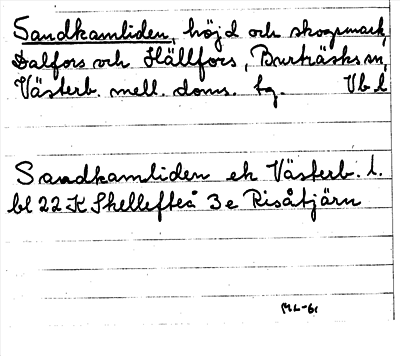 Sandkamliden, höjd och skogsmark,
Dalfors och Hällfors, Burträsks sn,
Västerb. mell. doms. fg. Vb l
Sandkamliden ek Västerb. l.
bl 22 K Skellefteå 3 e Risåtjärn
ML-61